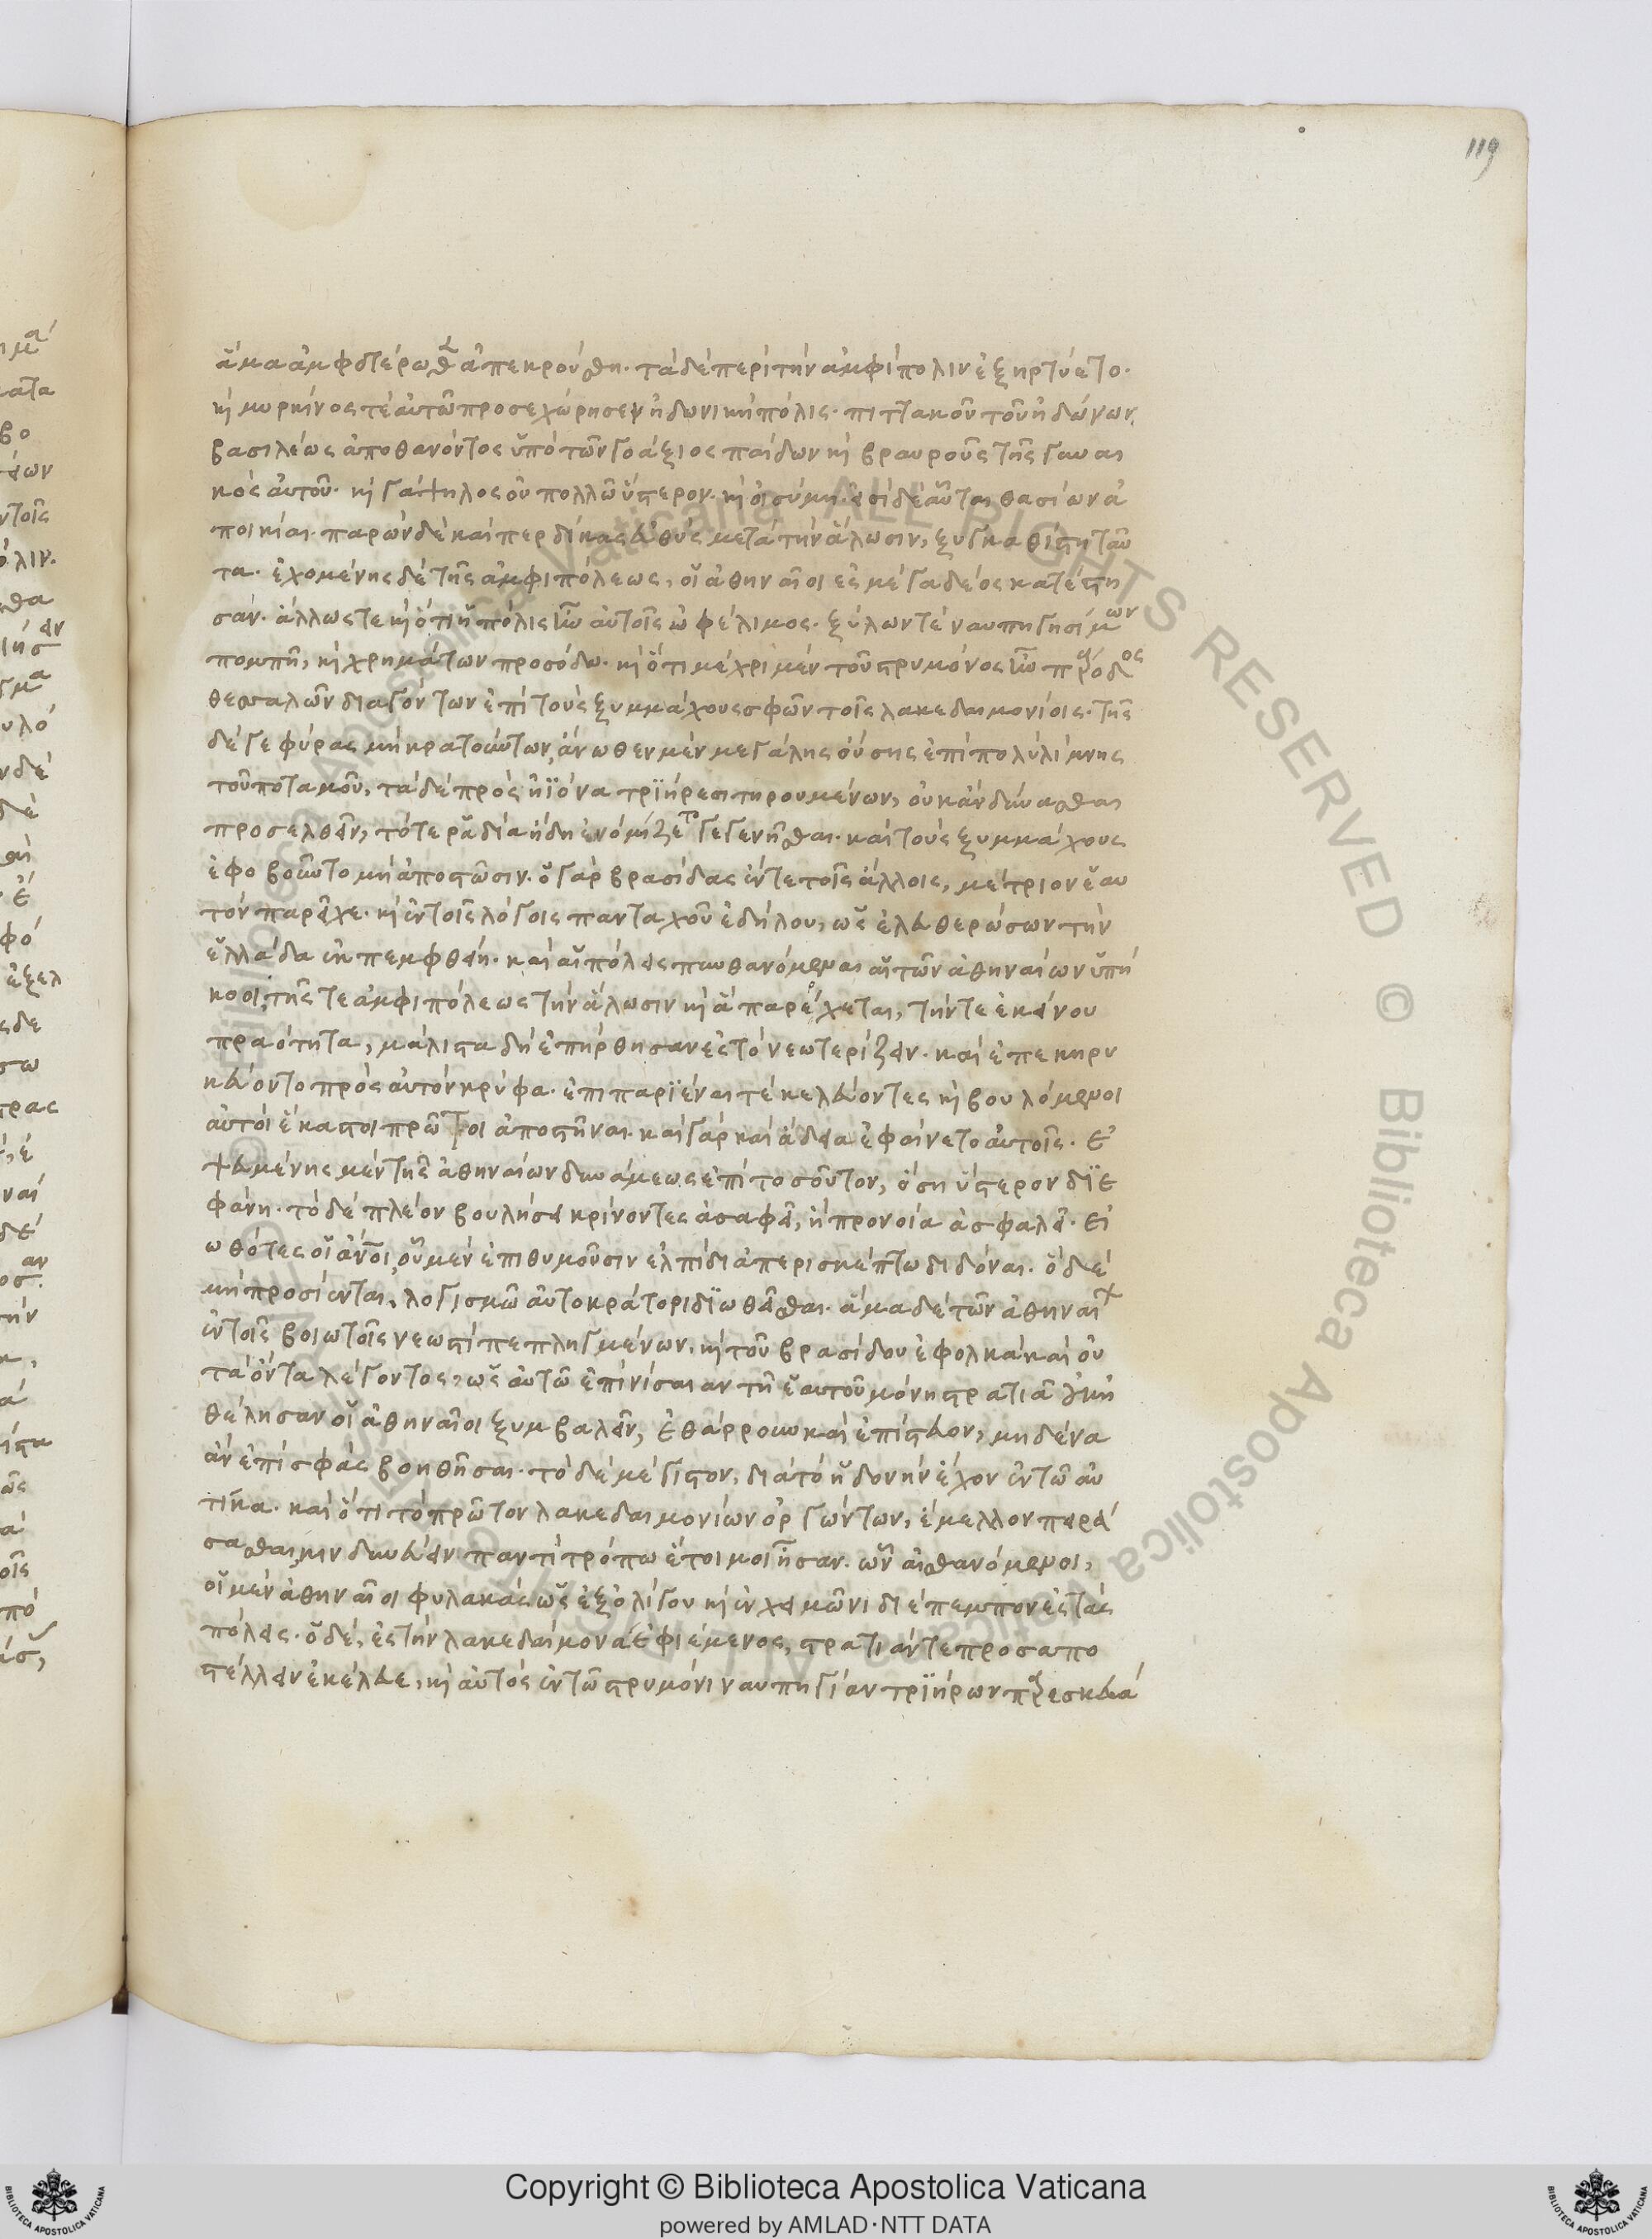 119
ἅμα ἀμφοτέρωθεν ἀπεκρούσθη. τὰ δὲ περὶ τὴν ἀμφίπολιν ἐξηρτύετο.
κὶ μυρκίνος τὲ αὐτῶ προσεχώρησεν ἠδωνικὴ πόλις. πιττακοῦ τοῦ ἠδώνων
βασιλέως ἀποθανόντος ὑπὸ τῶν γοάξιος παίδων κὶ βραυροῦς τῆς γυναι
κὸς αὐτοῦ. κὶ γαψηλος οὐ πολλῶ ὕστερον. κὶ οἰσύμη. εἰσὶ δὲ αὗται θασίων ἀ
ποικίαι. παρὼν δὲ καὶ περδίκας εὐθὺς μετὰ τὴν ἅλωσιν, ξυγκαθίστη ταῦ
τα. ἐχομένης δὲ τῆς ἀμφιπόλεως, οἱ ἀθηναῖοι ἐς μέγα δέος κατέστη
σαν. ἄλλως τε κὶ ὅτι ἡ πόλις ἦν αὐτοῖς ὠφέλιμος. ξύλων τὲ ναυπηγησίμων
πομπῆ, κὶ χρημάτων προσόδω. κὶ ὅτι μέχρι μὲν τοῦ στρυμόνος ἦν πάροδος
θεσσαλῶν διαγόντων ἐπὶ τοὺς ξυμμάχους σφῶν τοῖς λακεδαιμονίοις. τῆς
δὲ γεφύρας μὴ κρατούντων, ἄνωθεν μὲν μεγάλης οὔσης ἐπὶ πολὺ λίμνης
τοῦ ποταμοῦ, τὰ δὲ πρὸς ἠϊόνα τριήρεσι τηρουμένων, οὐκ ἂν δύνασθαι
προσελθεῖν, τότε ῥᾴδια ἤδη ἐνόμιζετο γεγενῆσθαι. καὶ τοὺς ξυμμάχους
ἐφοβοῦντο μὴ ἀποστῶσιν. ὁ γὰρ βρασίδας ἔν τε τοῖς ἄλλοις, μέτριον ἑαυ
τὸν παρεῖχε. κὶ ἐν τοῖς λόγοις πανταχοῦ ἐδήλου, ὡς ἐλευθερώσων τὴν
ἑλλάδα ἐκπεμφθείη. καὶ αἱ πόλεις πυνθανόμεναι αἱ τῶν ἀθηναίων ὑπή
κοοι, τῆς τε ἀμφιπόλεως τὴν ἅλωσιν κὶ ἃ παρέχεται, τήν τε ἐκείνου
πραότητα, μάλιστα δὴ ἐπήρθησαν ἐς τὸ νεωτερίζειν. καὶ ἐπεκηρυ
κεύοντο πρὸς αὐτὸν κρύφα. ἐπιπαριέναι τὲ κελεύοντες κὶ βουλόμενοι
αὐτοὶ ἕκαστοι πρῶτοι ἀποστῆναι. καὶ γὰρ καὶ ἄδεια ἐφαίνετο αὐτοῖς. ἐ
ψευμένης μὲν τῆς ἀθηναίων δυνάμεως ἐπὶ τοσοῦτον, ὅση ὕστερον διε
φάνη. τὸ δὲ πλέον βουλήσει κρίνοντες ἀσαφεῖ, ἢ προνοία ἀσφαλεῖ. εἰ
ωθότες οἱ ἄνθρωποι, οὗ μὲν ἐπιθυμοῦσιν ἐλπίδι ἀπερισκέπτω διδόναι. ὃ δὲ
μὴ προσίενται, λογισμῶ αὐτοκράτορι διωθεῖσθαι. ἅμα δὲ τῶν ἀθηναίων
ἐν τοῖς βοιωτοῖς νεωστὶ πεπληγμένων. κὶ τοῦ βρασίδου ἐφολκὰ καὶ οὐ
τὰ ὄντα λέγοντος, ὡς αὐτῶ ἐπὶ νίσαιαν τῆ ἑαυτοῦ μόνη στρατιᾶ οὐκ ἠ
θέλησαν οἱ ἀθηναῖοι ξυμβαλεῖν, ἐθάρρουν καὶ ἐπίστευον, μηδένα
ἂν ἐπὶ σφὰς βοηθῆσαι. τὸ δὲ μέγιστον, διὰ τὸ ἡδονὴν ἔχον ἐν τῶ αὐ
τίκα. καὶ ὅτι τὸ πρῶτον λακεδαιμονίων ὀργώντων, ἔμελλον πειρά
σασθαι, κινδυνεύειν παντὶ τρόπω ἕτοιμοι ἦσαν. ὧν αἰσθανόμενοι,
οἱ μὲν ἀθηναῖοι φυλακὰς ὡς ἐξ ὀλίγου κὶ ἐν χειμῶνι διέπεμπον ἐς τὰς
πόλεις. ὁ δὲ, ἐς τὴν λακεδαίμονα ἐφιέμενος, στρατιάν τε προσαπο
στέλλειν ἐκέλευε, κὶ αὐτὸς ἐν τῶ στρυμόνι ναυπηγίαν τριήρων παρεσκευά
Copyright © Biblioteca Apostolica Vaticana
powered by AMLAD·NTT DATA